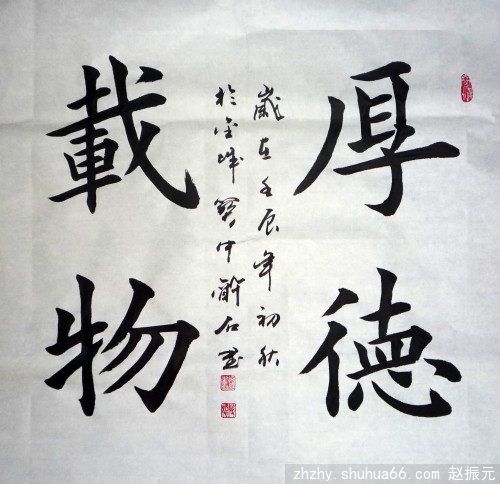 厚德
載物
歲在壬辰年初秋
於金城寶中醉石書
zhzhy.shuhua66.com 赵振元